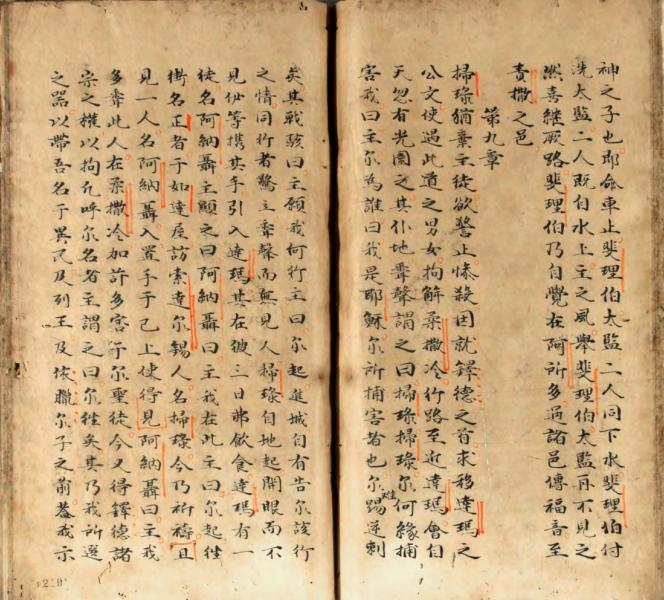 神之子也即命車止斐理伯太監二人同下水斐理伯付
洗太監二人既自水上主之風舉斐理伯太監再不見之
然喜継厥路斐理伯乃自覺在阿所多過諸邑傳福音至
責撒之邑
第九章
掃琭猶棄主徒欲警止慘殺因就鐸德之首求移達瑪之
公文使過此道之男女拘解柔撒冷行路至近達瑪會自
天忽有光圍之其仆地聽聲謂之曰掃琭掃琭尔何緣捕
害我曰主尔為誰曰我是耶穌尔所捕害者也尔踢逆刺
矣其戰駭曰主願我何行主曰尔起進城自有告尔該行
之情同行者驚立聽聲而無見人掃琭自地起開眼而不
見伊等携其手引入達瑪其在彼三日弗飲食達瑪有一
徒名阿納聶主顯之曰阿納聶曰主我在此主曰尔起往
街名正者于如達屋訪索達尔錫人名掃琭今乃祈禱且
見一人名阿納聶入置手于己上使得見阿納聶曰主我
多聽此人在柔撒冷加許多害于尔聖徒今又得鐸德諸
宗之權以拘凡呼尔名者主謂之曰尔往矣其乃我所選
之器以帶吾名于異民及列王及依臘尔子之前蓋我示